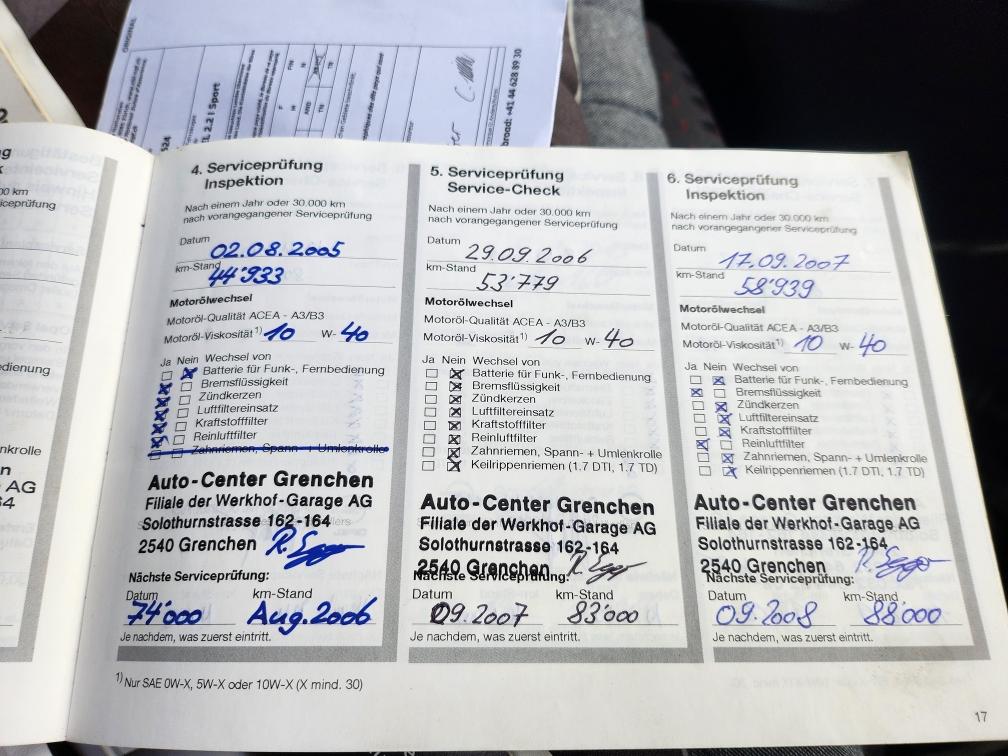 ORIGINAL
2.2 i Sport
broad: +41 44 628 89 30
4. Serviceprüfung
Inspektion
Nach einem Jahr oder 30.000 km
nach vorangegangener Serviceprüfung
Datum
02.08.2005
km-Stand
44'933
Motorölwechsel
Motoröl-Qualität ACEA - A3/B3
Motoröl-Viskosität1) 10 W- 40
Ja Nein Wechsel von
Batterie für Funk-, Fernbedienung
Bremsflüssigkeit
Zündkerzen
Luftfiltereinsatz
Kraftstofffilter
Reinluftfilter
Zahnriemen, Spann- + Umlenkrolle
Auto-Center Grenchen
Filiale der Werkhof-Garage AG
Solothurnstrasse 162-164
2540 Grenchen
Nächste Serviceprüfung:
Datum km-Stand
74'000 Aug.2006
Je nachdem, was zuerst eintritt.
5. Serviceprüfung
Service-Check
Nach einem Jahr oder 30.000 km
nach vorangegangener Serviceprüfung
Datum
29.09.2006
km-Stand
53'779
Motorölwechsel
Motoröl-Qualität ACEA - A3/B3
Motoröl-Viskosität1) 10 W- 40
Ja Nein Wechsel von
Batterie für Funk-, Fernbedienung
Bremsflüssigkeit
Zündkerzen
Luftfiltereinsatz
Kraftstofffilter
Reinluftfilter
Zahnriemen, Spann- + Umlenkrolle
Keilrippenriemen (1.7 DTI, 1.7 TD)
Auto-Center Grenchen
Filiale der Werkhof-Garage AG
Solothurnstrasse 162-164
2540 Grenchen
Nächste Serviceprüfung:
Datum km-Stand
09.2007 83'000
Je nachdem, was zuerst eintritt.
6. Serviceprüfung
Inspektion
Nach einem Jahr oder 30.000 km
nach vorangegangener Serviceprüfung
Datum
17.09.2007
km-Stand
58'939
Motorölwechsel
Motoröl-Qualität ACEA - A3/B3
Motoröl-Viskosität1) 10 W- 40
Ja Nein Wechsel von
Batterie für Funk-, Fernbedienung
Bremsflüssigkeit
Zündkerzen
Luftfiltereinsatz
Kraftstofffilter
Reinluftfilter
Zahnriemen, Spann- + Umlenkrolle
Keilrippenriemen (1.7 DTI, 1.7 TD)
Auto-Center Grenchen
Filiale der Werkhof-Garage AG
Solothurnstrasse 162-164
2540 Grenchen
Nächste Serviceprüfung:
Datum km-Stand
09.2008 88'000
Je nachdem, was zuerst eintritt.
1) Nur SAE 0W-X, 5W-X oder 10W-X (X mind. 30)
17